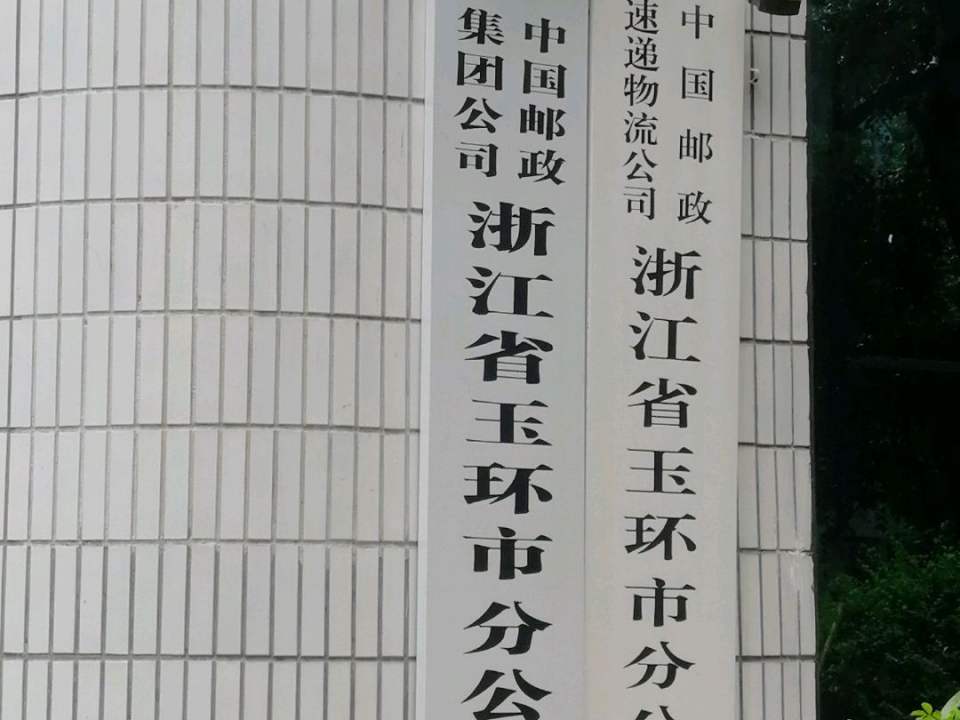 中国邮政
集团公司
浙江省玉环市分公
中国邮政
速递物流公司
浙江省玉环市分